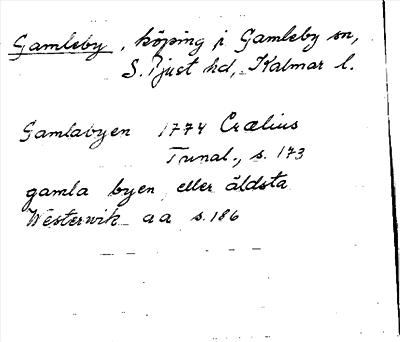 Gamleby, köping i Gamleby sn,
S. Tjust hd, Kalmar l.
Gamlabyen 1774 Crælius
Tunal., s. 173
gamla byen eller äldsta
Westerwik aa s. 186